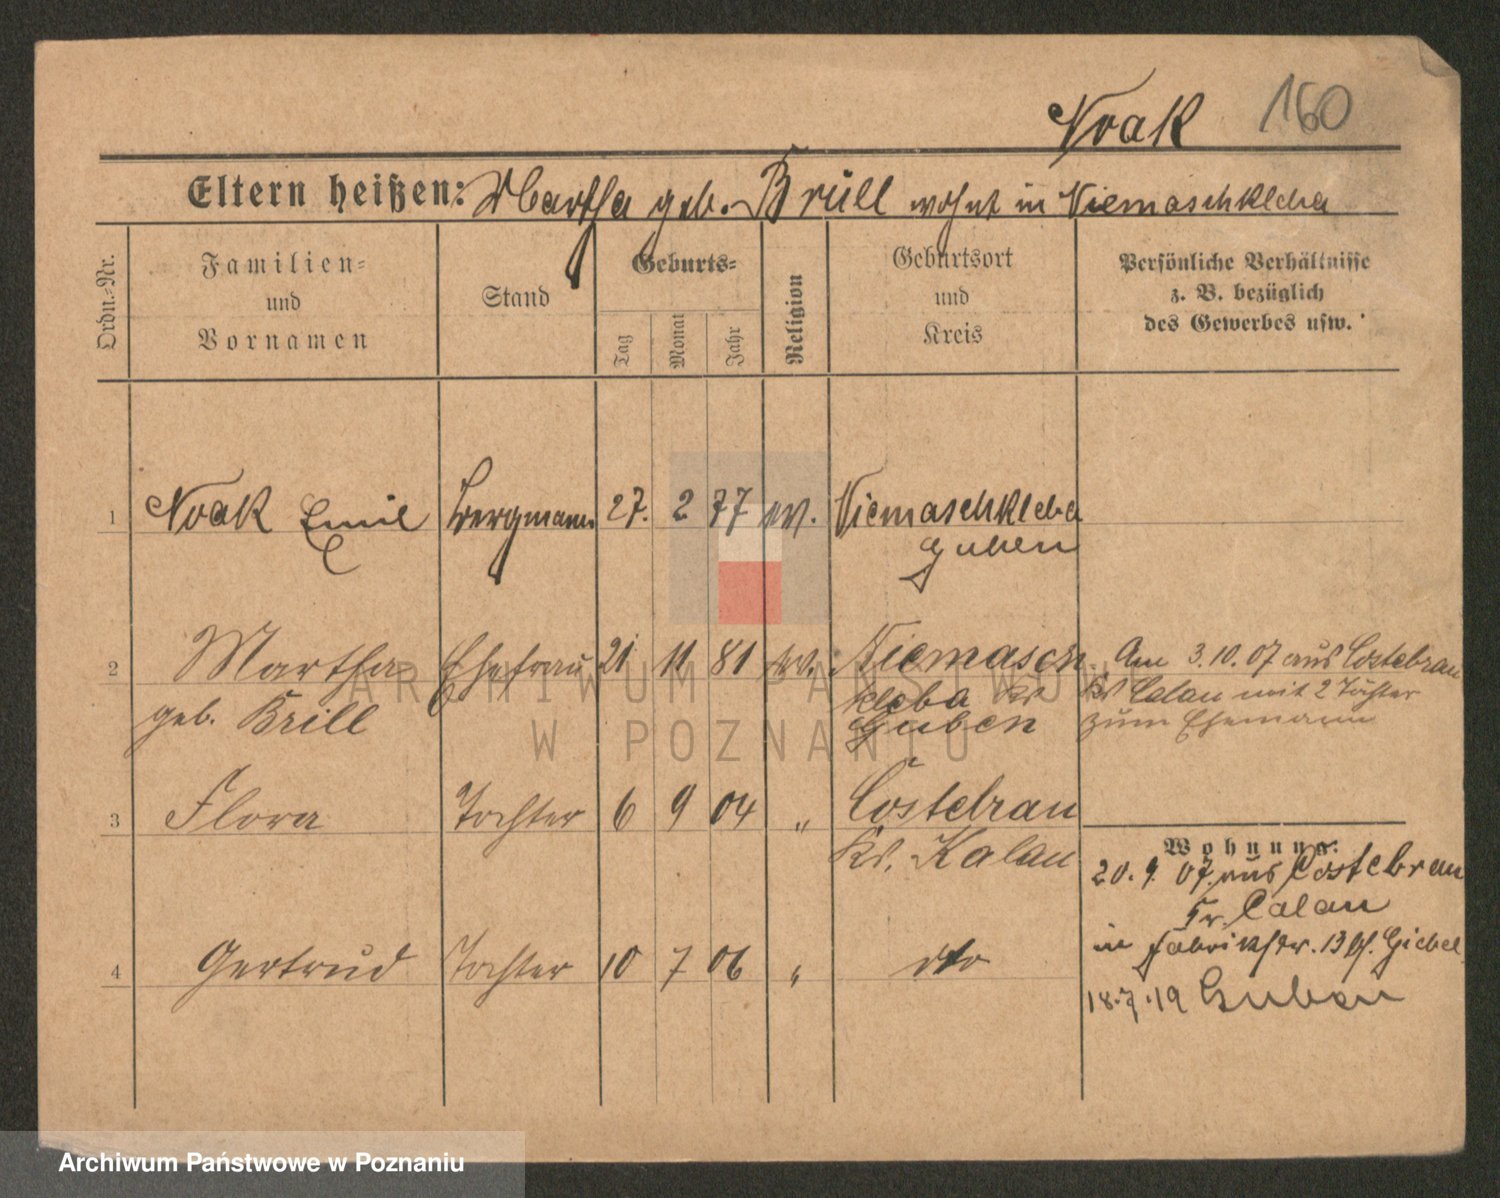 Noak 160
Eltern heißen: Martha geb. Brüll wohnt in Niemaschkleba
Ordn.-Nr.
Familien-
und
Vornamen
Stand
Geburts-
Tag
Monat
Jahr
Religion
Geburtsort
und
Kreis
Persönliche Verhältnisse
z. B. bezüglich
des Gewerbes usw.
1 Noak Emil Bergmann 27. 2 77 ev. Niemaschkleba
Guben
2 Martha Ehefrau 21 11 81 ev. Niemasch
geb. Brill kleba Kr
Guben
Am 3.10.07 aus Costebrau
Kr Calau mit 2 Töchter
zum Ehemann
3 Flora Tochter 6 9 04 " Costebrau
Kr. Kalau
4 Gertrud Tochter 10 7 06 " dto
Wohnung.
20. 9. 07. aus Costebrau
Kr. Calau
in Fabrikstr. 13 Giebel
18.7.19 Guben
ARCHIWUM PAŃSTWOWE
W POZNANIU
Archiwum Państwowe w Poznaniu